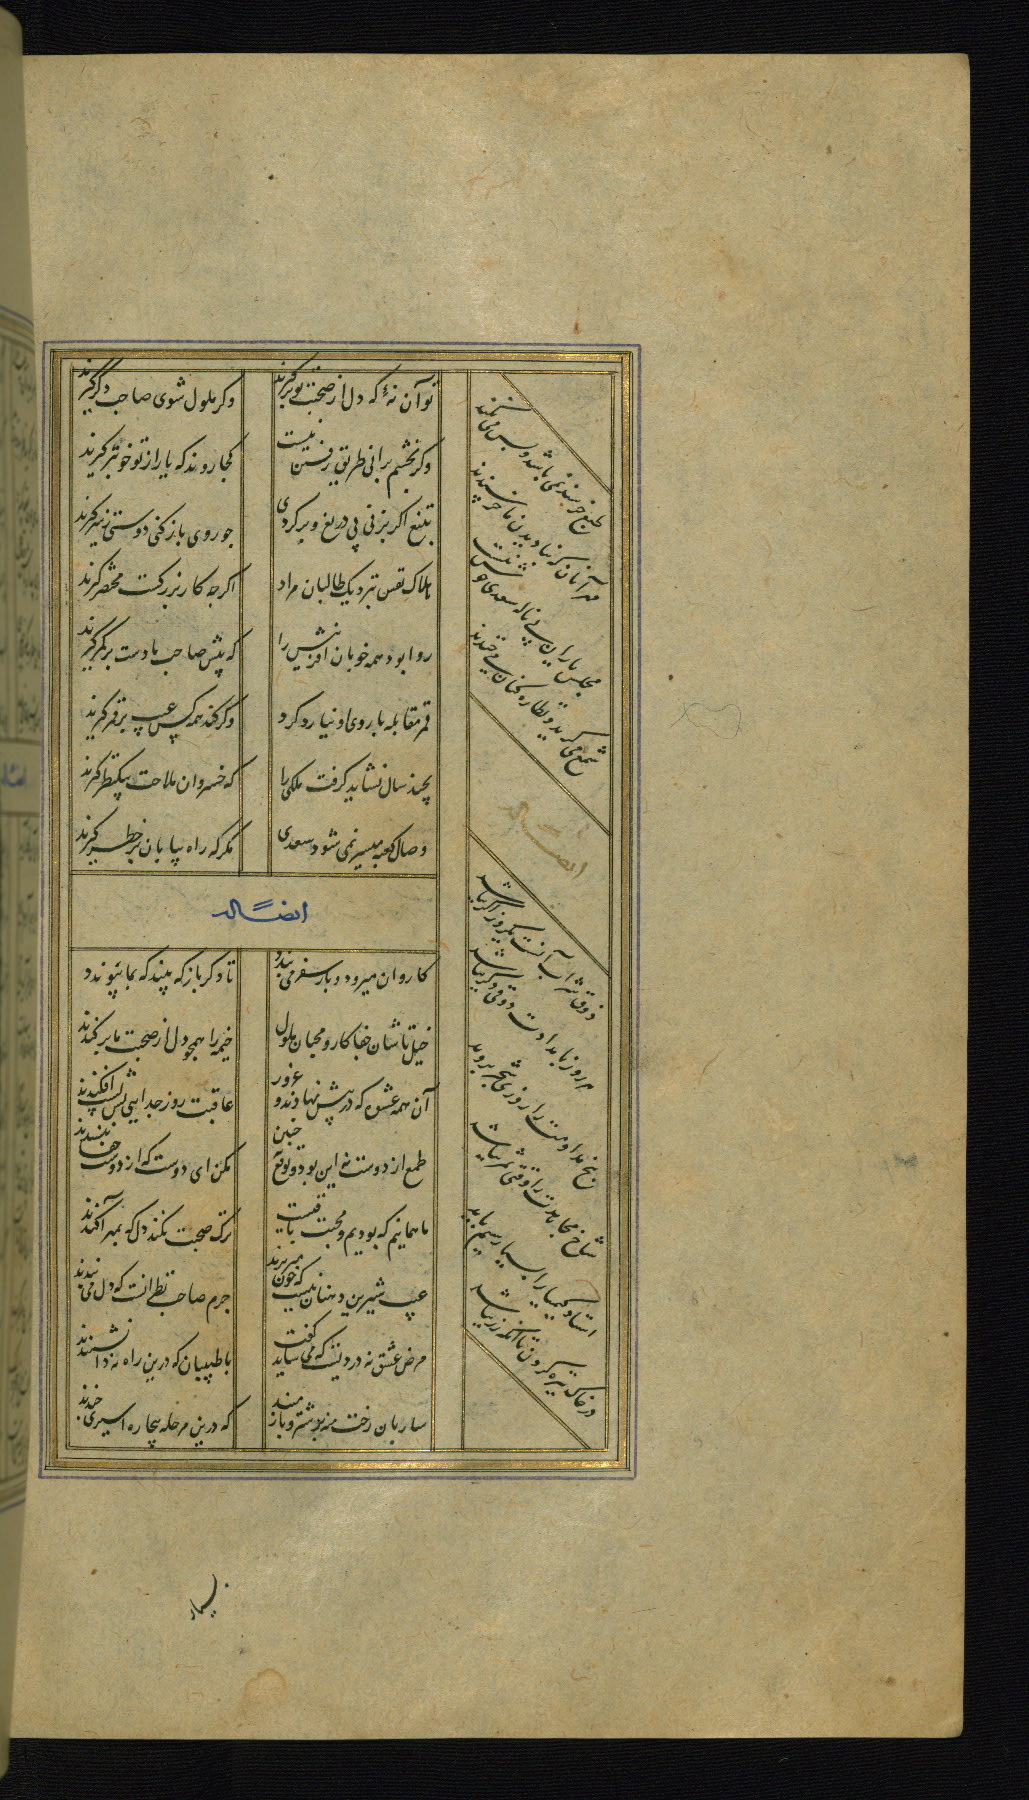 تو آن نهٔ که دل از صحبت تو برگیرند
وگر ملول شوی صاحب دگر گیرند
وگر بخشم برانی طریق رفتن نیست
کجا روند که یار از تو خوبتر گیرند
بتیغ اگر بزنی بی دریغ و برگردی
چو روی باز کنی دوستی ز سر گیرند
هلاک نفس بنزدیک طالبان مراد
اگرچه کار بزرگست مختصر گیرند
روا بود همه خوبان آفرینش را
که پیش صاحب ما دست بر کمر گیرند
قمر مقابله با روی او نیارد کرد
وگر کند همه کس عیب بر قمر گیرند
بچند سال نشاید گرفت ملکی را
که خسروان ملاحت بیکنظر گیرند
وصال کعبه میسر نمی شود سعدی
مگر که راه بیابان پر خطر گیرند
ایضاً له
کاروان میرود و بار سفر می بندد
تا دگر باز که بیند که بما پیوندد
خیلتاشان جفاکار و محبان ملول
خیمه را همچو دل از صحبت ما برکندند
آن همه عشوه که در پیش نهادند و غرور
عاقبت روز جدایی پس پشت افکندند
طمع از دوست نه این بود و توقع چنین
مکن ای دوست که از دوست جفا نپسندند
ما همانیم که بودیم و محبت باقیست
ترک صحبت نکند دل که بمهر آکندند
عیب شیرین دهنان نیست که خون میریزند
جرم صاحب نظرانست که دل می بندند
مرض عشق نه دردیست که می شاید گفت
با طبیبان که درین راه نه دانشمندند
ساربان رخت منه بر شتر و بار مبند
که درین مرحله بیچاره اسیری چندند
مجلس یاران بی ناله سعدی خوش نیست
شمع می گرید و نظاره کنان می خندند
ایضاً له
ذوق شراب آنست یکروز اگر بباشد
هر روز بامدادت ذوقی دگر بباشد
بیخ مداومت را روزی شجر بروید
شاخ مجاهدت را وقتی ثمر بباشد
استاد کیمیا را بسیار سیم باید
در خاک تیره کردن تا آنکه زر بباشد
بسیار